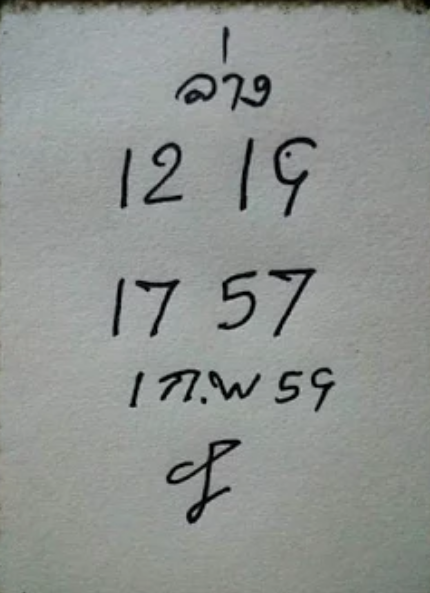 ล่าง
12 19
17 57
1 ก.พ 59